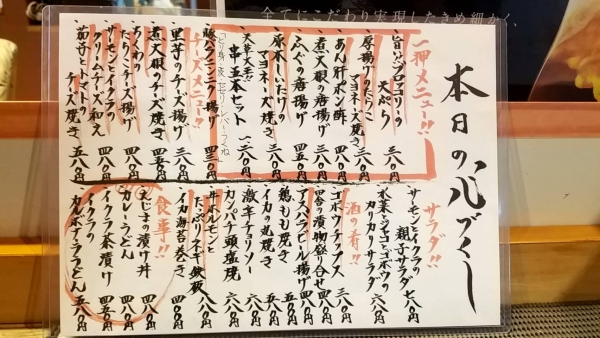 全てにこだわり実現したきめ細かく、
本日の心づくし
一押メニュー!!
、旨いブロッコリーの天ぷら 三八〇円
、厚揚げのたらこマヨネーズ焼き 三八〇円
、あん肝ポン酢 四八〇円
、煮大根の唐揚げ 三八〇円
、ふぐの唐揚げ 四五〇円
、原木しいたけのマヨネーズ焼き
、串五本セット 一、二八〇円
、豚ハラミンニンニク揚げ 四三〇円
チーズメニュー!!
、里芋のチーズ揚げ 三八〇円
、煮大根のチーズ焼き 四五〇円
、ちくわのたらこチーズ揚げ 四八〇円
、サーモンとイクラのクリームチーズ和え
、茄子とトマトのチーズ焼き 五八〇円
サラダ!!
、サーモンとイクラの親子サラダ 七八〇円
、水菜とジャコとゴボウのカリカリサラダ 六八〇円
酒の肴!!
、ゴボウチップス 三八〇円
、四合の漬物盛り合せ 四八〇円
、アスパラビール揚げ 四五〇円
、鶏もも焼き 五八〇円
、イカの丸焼き 五八〇円
、激辛チョリソー 六八〇円
、カンパチ頭塩焼 六八〇円
、サーモンとたっぷりネギ鉄板 八八〇円
、イカ海苔巻き 四八〇円
食事!!
、えじまの漬け丼 四八〇円
、カレーうどん 四八〇円
、イクラ茶漬け 四五〇円
、イクラのカルボナーラうどん 五八〇円